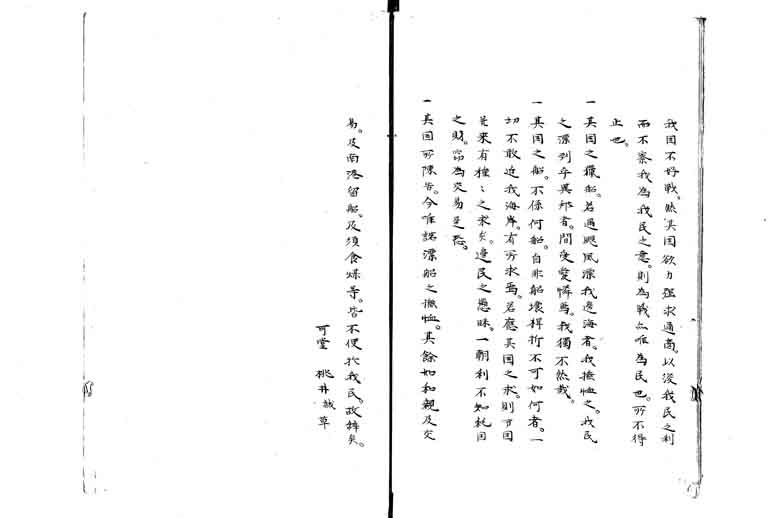 我国不好戦。然其国欲力強求通商。以浚我民之利
而不察我為我民之意。則為戦亦唯為民也。所不得
止也。
一其国之猟船。若遇颶風漂我邊海者。我撫恤之。我民
之漂到乎異邦者。間受愛憐焉。我獨不然哉。
一其国之船。不係何船。自非船壊桿折不可如何者。一
切不敢近我海岸。有所求焉。若應其国之求。則万国
来有種〻之求矣。邊民之愚昧。一朝利不知耗国
之財。為交易是恐。
一其国所陳告。今唯諾漂船之撫恤。其餘如和親及交
易。及南港留船。及須食煤等。皆不便於我民。故辞矣。
可堂 桃井誠草